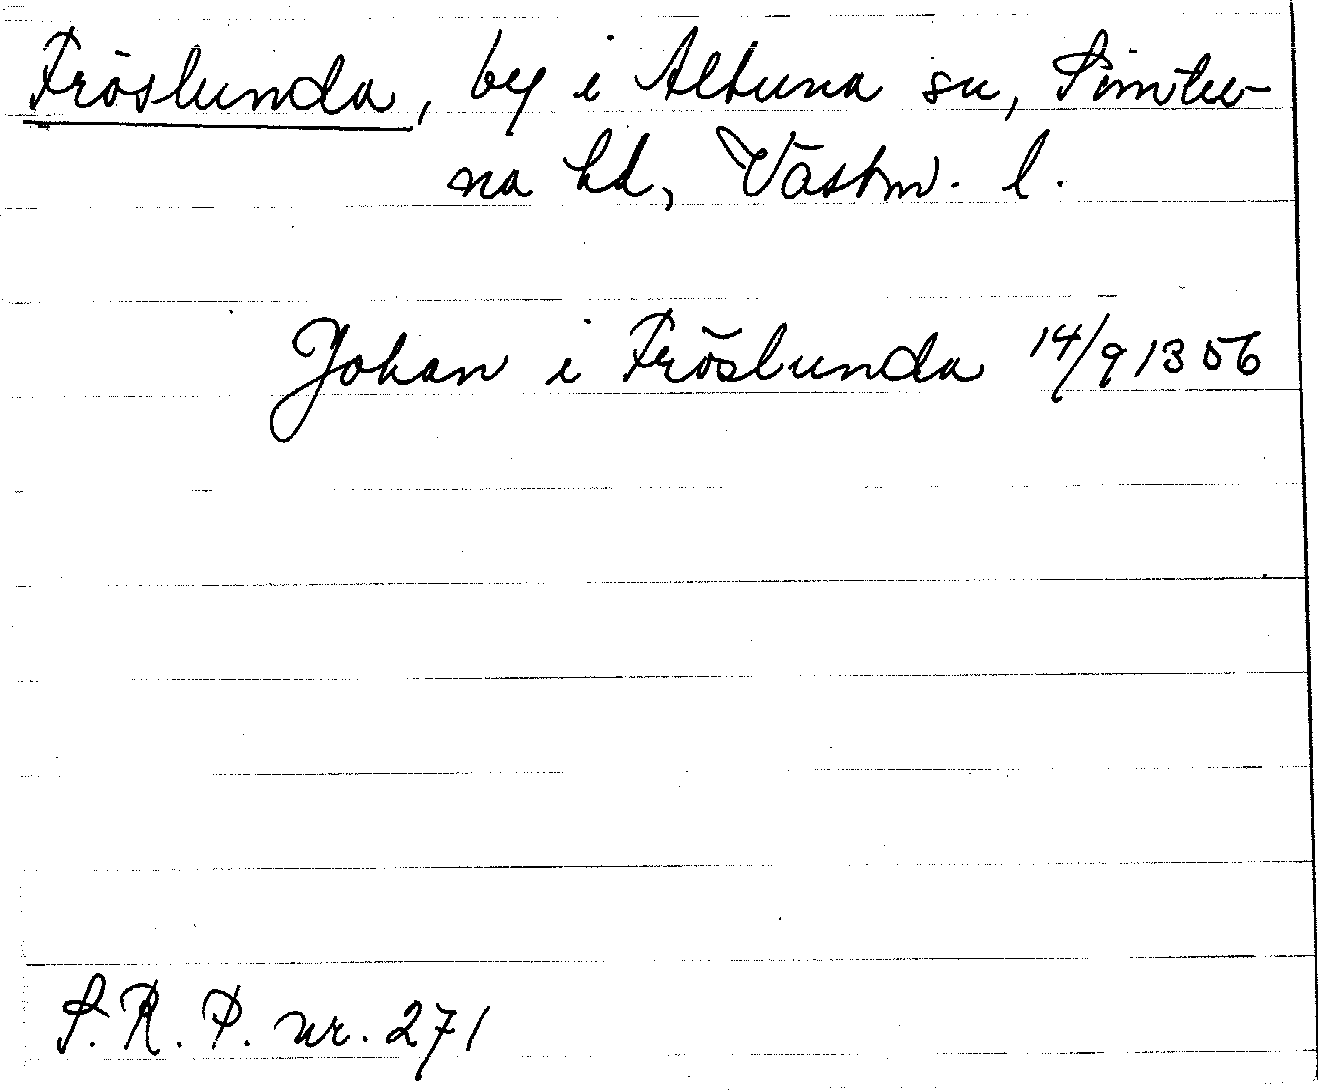 Fröslunda, by i Altuna sn, Simtu-
na hd, Västm. l.
Johan i Fröslunda 14/9 1356
S. R. P. nr. 271